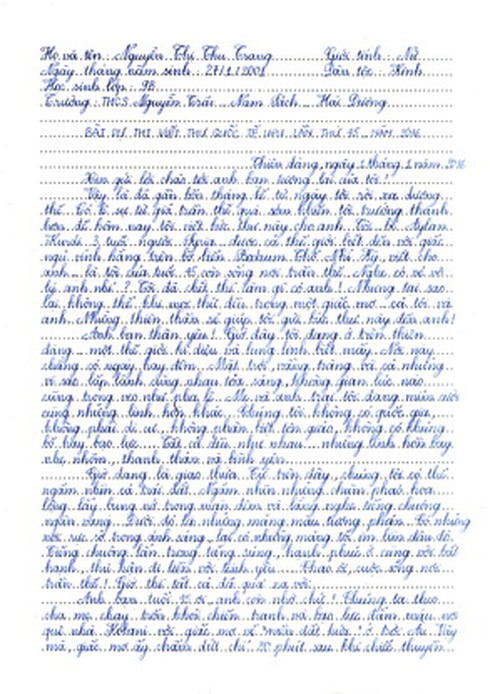 Họ và tên : Nguyễn Thị Thu Trang Giới tính : Nữ
Ngày tháng năm sinh : 27/1/2001 Dân tộc : Kinh
Học sinh lớp : 9B
Trường : THCS Nguyễn Trãi Nam Sách Hải Dương
BÀI DỰ THI VIẾT THƯ QUỐC TẾ UPU LẦN THỨ 45 NĂM 2016
Thiên đàng, ngày 1 tháng 1 năm 2016
Xin gửi lời chào tới anh bạn tương lai của tôi !
Vậy là đã gần bốn tháng kể từ ngày tôi rời xa dương
thế. Có lẽ sự từ giã trần thế quá sớm khiến tôi trưởng thành
hơn để hôm nay tôi viết bức thư này cho anh. Tôi, bé Aylan
Kurdi 3 tuổi người Syria được cả thế giới biết đến với giấc
ngủ vĩnh hằng trên bờ biển Bodrum Thổ Nhĩ Kỳ, viết cho
anh là tôi của tuổi 45 còn sống nơi trần thế. Nghe có vẻ vô
lý anh nhỉ ? Tôi đã chết thì làm gì có anh ! Nhưng tại sao
lại không thể khi mọi thứ đều trong một giấc mơ cả tôi và
anh. Những thiên thần sẽ giúp tôi gửi bức thư này đến anh !
Anh bạn thân yêu ! Giờ đây tôi đang ở trên thiên
đàng một thế giới kì diệu và lung linh biết mấy. Nơi này
chẳng có ngày hay đêm. Mặt trời, vầng trăng và cả những
vì sao lấp lánh cùng nhau tỏa sáng, không gian lúc nào
cũng trong veo như pha lê. Mẹ và anh trai tôi đang
cùng những linh hồn khác. Chúng tôi không có quốc gia,
không phải di cư, không phân biệt tôn giáo, không có khủng
bố hay bạo lực. Tất cả đều như nhau những linh hồn bay
nhẹ nhõm, thanh thản và bình yên.
Giờ đang là giao thừa. Từ trên đây, chúng tôi có thể
ngắm nhìn cả trái đất. Ngắm nhìn những chùm pháo hoa
lộng lẫy bung nở trong màn đêm và lắng nghe tiếng chuông
ngân vang. Dưới đó là những mảng màu tương phản. Có những
nơi rực rỡ trong ánh sáng, lại có những mảng tối im lìm đâu đó.
Tiếng chuông lẫn trong tiếng súng, hạnh phúc ở cùng với bất
hạnh, thù hận đi liền với tình yêu. Chao ôi, cuộc sống nơi
trần thế ! Giờ thì tất cả đã quá xa vời.
Anh bạn tuổi 45 ơi, anh còn nhớ chứ ! Chúng ta theo
cha mẹ chạy trốn khỏi chiến tranh và bạo lực đẫm máu nơi
quê nhà Kobani với giấc mơ về "miền đất hứa" ở trời Âu. Vậy
mà, giấc mơ ấy chấm dứt chỉ 20 phút sau khi chiếc thuyền